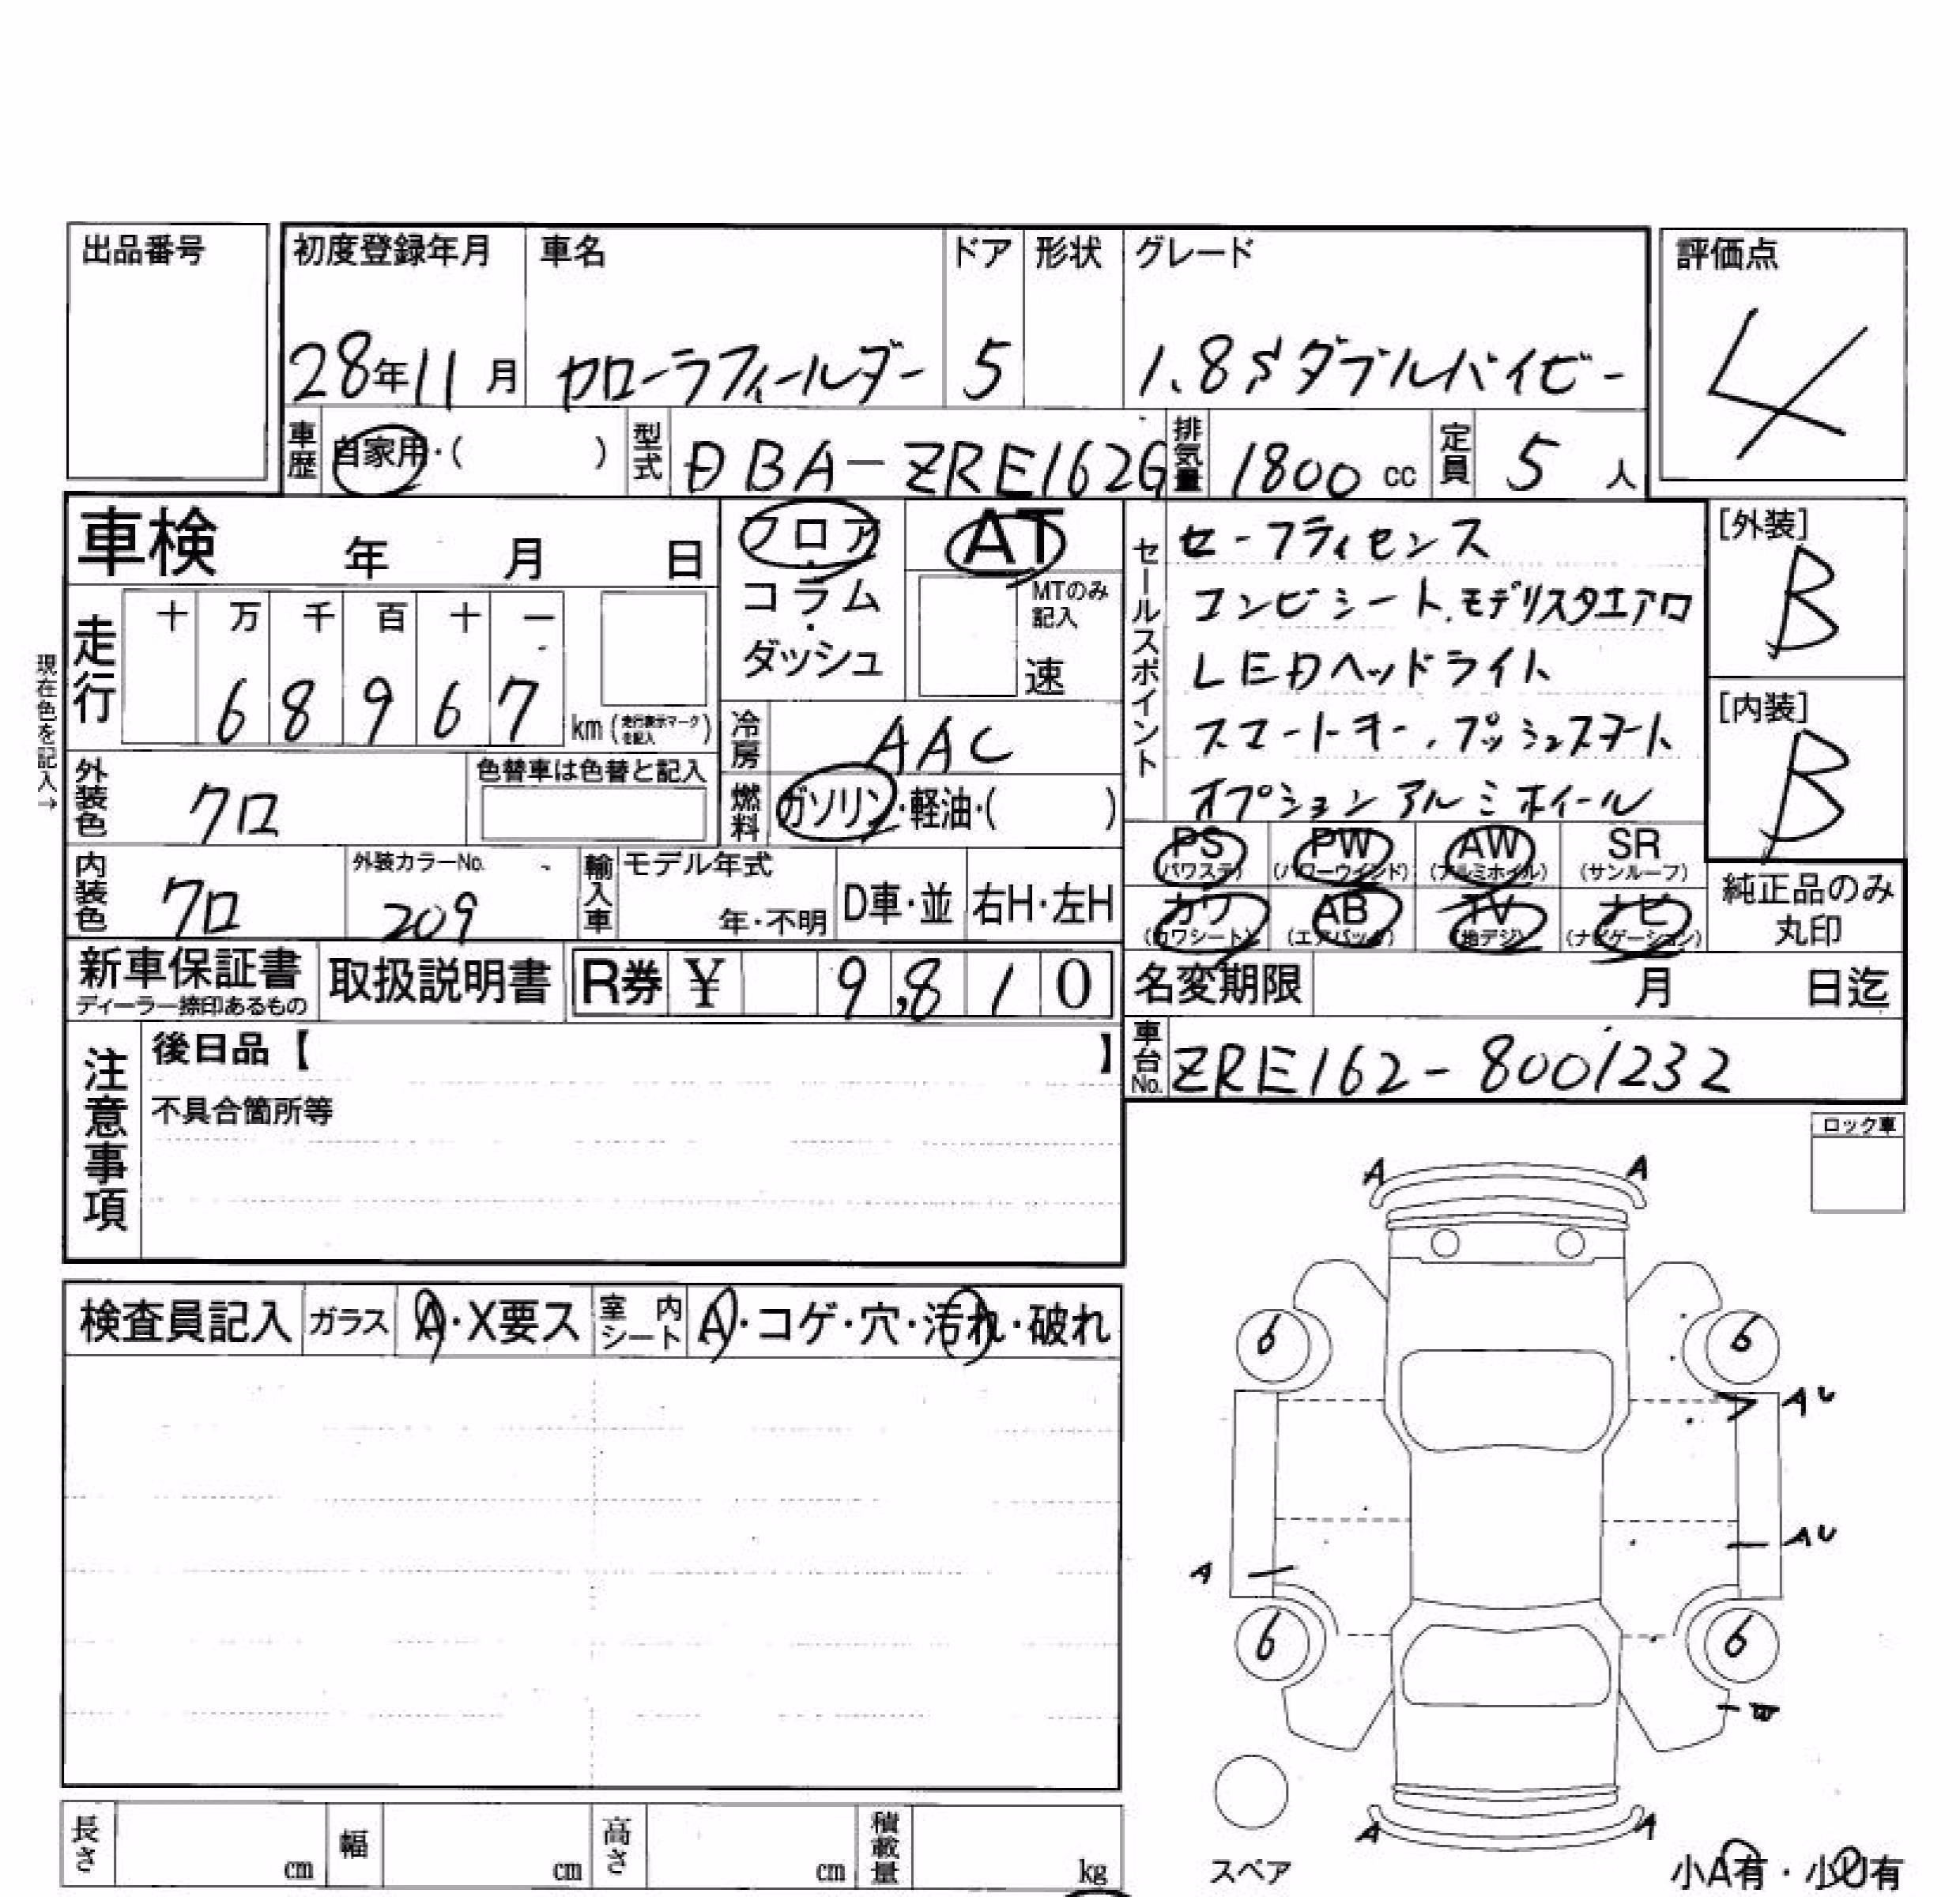 出品番号
初度登録年月 車名 ドア 形状 グレード
評価点
28年11月 カローラフィールダー 5 1.8Sダブルバイビー
4
車歴 自家用・( ) 型式 DBA-ZRE162G 排気量 1800cc 定員 5人
車検 年 月 日
フロア・コラム・ダッシュ
AT
MTのみ記入
速
セールスポイント
セーフティセンス
コンビシート.モデリスタエアロ
LEDヘッドライト
スマートキー.プッシュスタート
オプションアルミホイール
[外装]
B
[内装]
B
現在色を記入→
走行 十 万 千 百 十 一
6 8 9 6 7 km(走行表示マークを記入)
冷房 AAC
外装色 クロ 色替車は色替と記入
燃料 ガソリン・軽油・( )
PS PW AW SR
(パワステ) (パワーウインド) (アルミホイル) (サンルーフ)
カワ AB TV ナビ
(カワシート) (エアバック) (地デジ) (ナビゲーション)
純正品のみ
丸印
内装色 クロ 外装カラーNo. 209 輸入車 モデル年式 年・不明 D車・並 右H・左H
新車保証書 取扱説明書 R券 ¥ 9,810
ディーラー捺印あるもの
名変期限 月 日迄
車台No. ZRE162-8001232
注意事項
後日品【 】
不具合箇所等
ロック車
A A
検査員記入 ガラス A・X要ス 室内シート A・コゲ・穴・汚れ・破れ
6 6
AU
AU
A
6 6
A A
長さ cm 幅 cm 高さ cm 積載量 kg
スペア
小A有・小U有